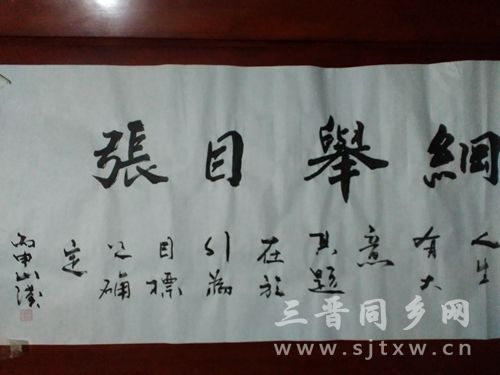 綱舉目張
人生
有大
意
其題
在於
引為
目標
之确
定
丙申山漢
三晋同乡网
www.sjtxw.cn